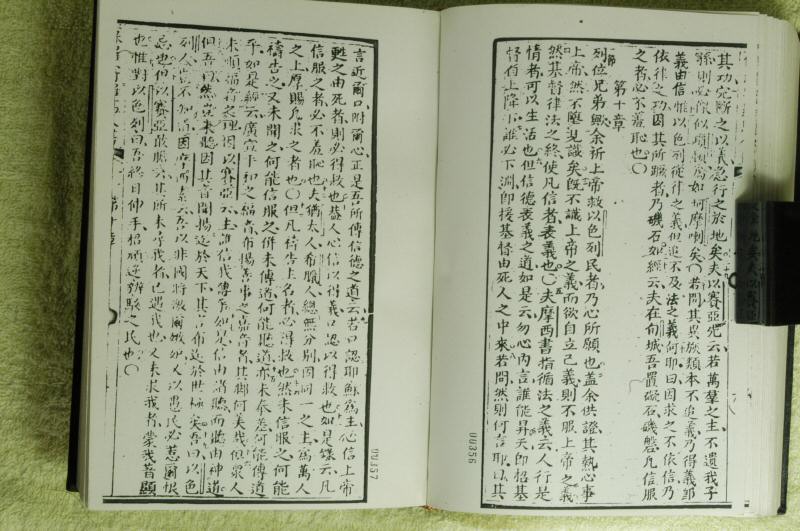 其功完斷之以義急行之於地矣夫以賽亞先云若萬羣之主不遺我子
孫則必似所多馬如坷摩喇矣○若問其異族類本不追義乃得義卽
義由信惟以色列從律之義但追不及法之義何耶曰因求之不依信乃
依律之功因其所躓者乃礙石如經云夫在旬城吾置礙石磯磐凡信服
之者必不羞恥也○
第十章
列位兄弟歟余祈上帝救以色列民者乃心所願也蓋余供證其熱心事
上帝然不壓見識矣旣不識上帝之義而欲自立己義則不服上帝之義
然基督律法之終使凡信者表義也○夫摩西書指循法之義云人行是
情者可以生活也但信德表義之道如是云勿心內言誰能昇天卽招基
督自上降下誰必下淵卽接基督由死人之中來若問然則何言耶以其
00356
言近爾口附爾心正是吾所傳信德之道云若口認耶穌爲主心信上帝
甦之由死者則必得救也蓋人心信以得義口認以得救也如是錄云凡
信服之者必不羞恥也夫猶太人希臘人總無分別因同一之主爲萬人
之上厚賜凡求之者也○但凡禱告上名者必得救也然未信服之何能
禱告之又未聞之何能信服之併未傳道何能聽道亦未奉差何能傳道
乎如是經云廣宣平和之福音布揚善事之嘉音者其腳何美哉但衆人
未順福音之理因以賽亞云主誰信我傳等如是信由消聽而聽由神道
但吾曰然豈未聽因其音聞揚迄於天下其言布迄於世極矣吾曰以色
列人豈不知而因摩西素云吾以非國將激爾嫉妒又以愚民必惹爾恨
忌也但以賽亞敢膽云其所未尋我者也遇我也又未求我者蒙我著顯
也惟對以色列曰吾終日伸手招頑逆辯駁之民也○
00357